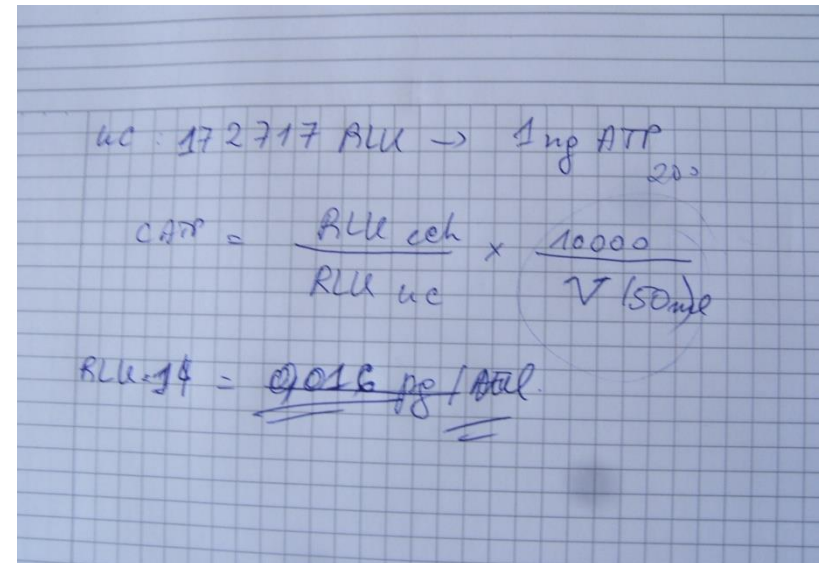 uc : 172717 RLU → 1 ng ATP
200
CATP = RLU ech / RLU uc × 10000 / V (50ml)
RLU 14 = 0,016 pg /